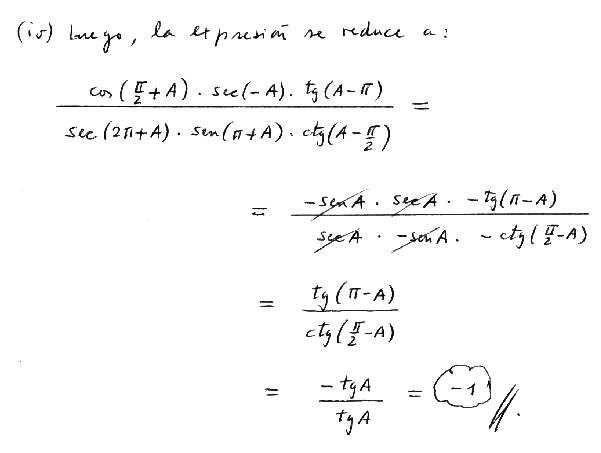 (iv) Luego, la expresión se reduce a:
cos(π/2+A) · sec(-A) · tg(A-π) / sec(2π+A) · sen(π+A) · ctg(A-π/2) =
= -senA · secA · -tg(π-A) / secA · -senA · -ctg(π/2-A)
= tg(π-A) / ctg(π/2-A)
= -tgA / tgA = -1 //.